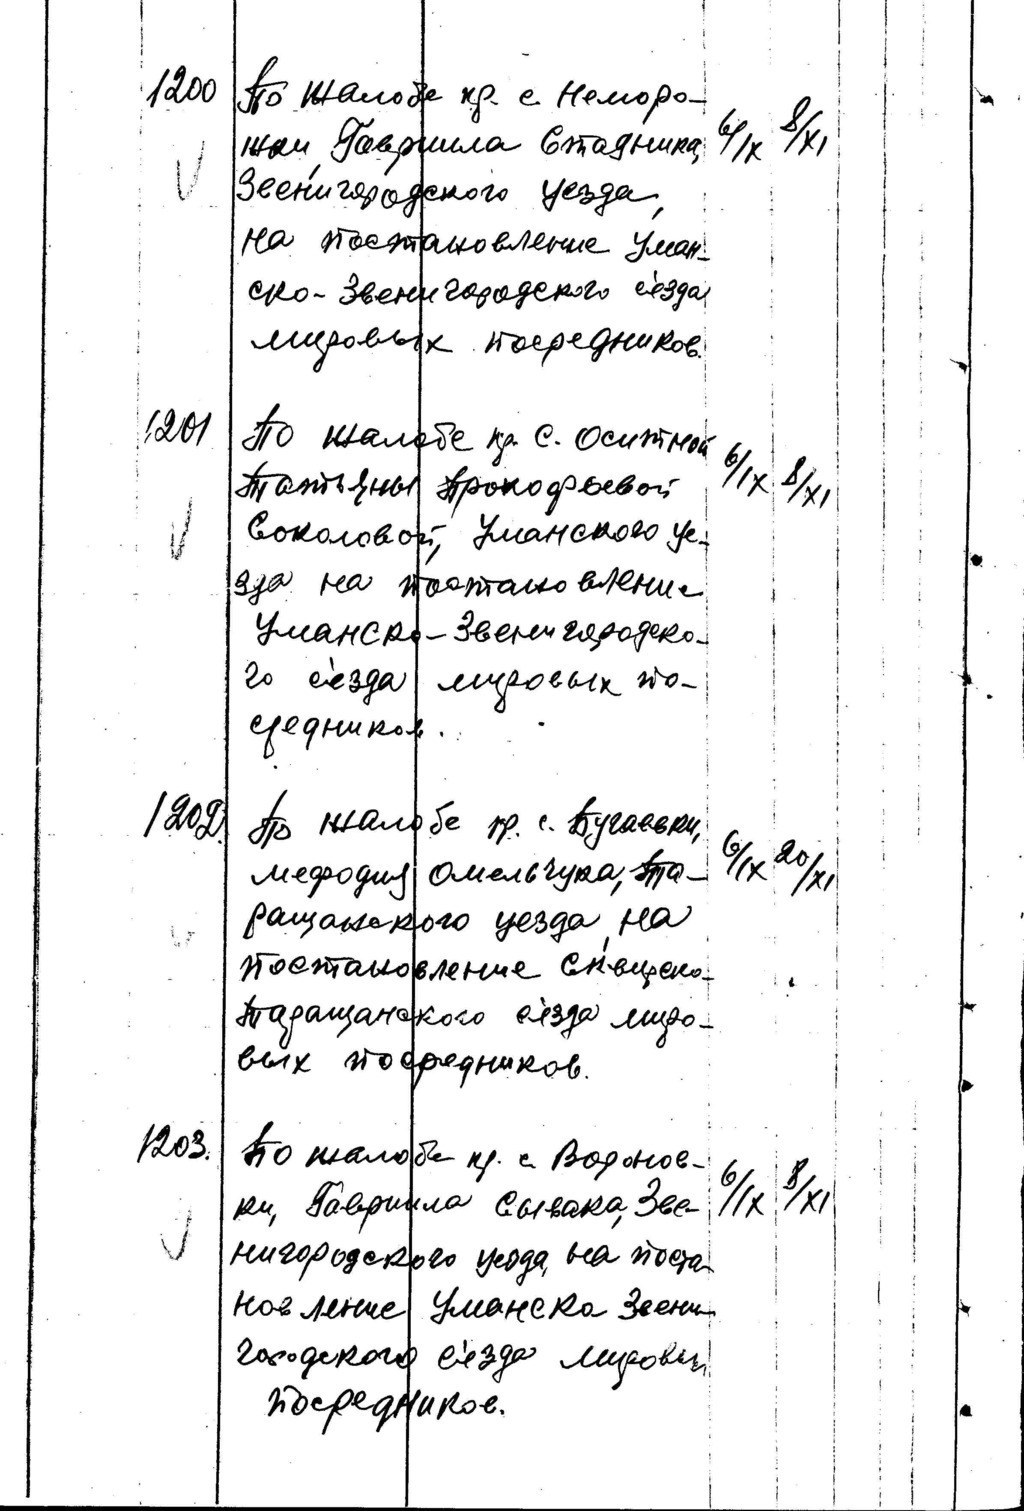 1200 По жалобе кр. с. Неморо-
жи, Гавриила Стадника, 6/IX 8/XI
Звенигородского уезда,
на постановление Уман-
ско-Звенигородского с'езда
мировых посредников.
1201 По жалобе кр. с. Оситной
Татьяны Прокофьевой 6/IX 8/XI
Соколовой, Уманского уе-
зда на постановление
Уманско-Звенигородско-
го с'езда мировых по-
средников.
1202. По жалобе кр. с. Бугаевки,
Мефодия Омельчука, Та- 6/IX 20/XI
ращанского уезда, на
постановление Сквирско-
Таращанского с'езда миро-
вых посредников.
1203. По жалобе кр. с. Воронов-
ки, Гавриила Сывака, Зве- 6/IX 8/XI
нигородского уезда, на поста-
новление Уманско Звени
городского с'езда мировых
посредников.